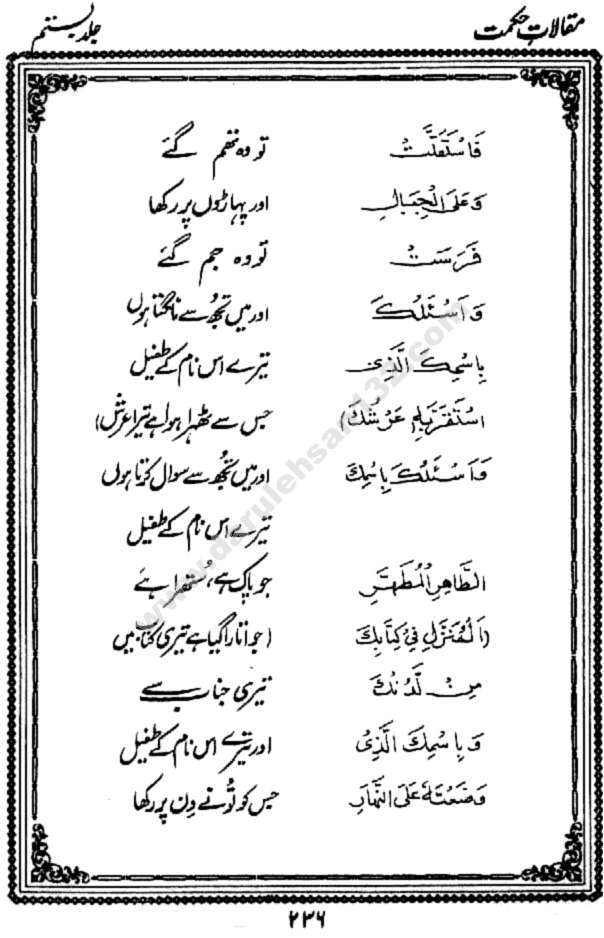 مقالاتِ حکمت جلد بستم
فَاسْتَقَلَّتْ تو وہ تھم گئے
وَعَلَى الْجِبَالِ اور پہاڑوں پر رکھا
فَرَسَتْ تو وہ جم گئے
وَاَسْئَلُكَ اور میں تجھ سے مانگتا ہوں
بِاسْمِكَ الَّذِىْ تیرے اس نام کے طفیل
اسْتَقَرَّبِهٖ (عَرْشُكَ) جس سے ٹھہرا ہوا ہے تیرا عرش)
وَاَسْئَلُكَ بِاسْمِكَ اور میں تجھ سے سوال کرتا ہوں
تیرے اس نام کے طفیل
الطَّاهِرِ الْمُطَهَّرِ جو پاک ہے، ستھرا ہے
(الْمُنَزَّلِ فِىْ كِتَابِكَ (جو اتارا گیا ہے تیری کتاب میں
مِنْ لَّدُنْكَ تیری جناب سے
وَبِاسْمِكَ الَّذِىْ اور تیرے اس نام کے طفیل
وَضَعْتَهٗ عَلَى النَّهَارِ جس کو تُو نے دِن پر رکھا
۲۳۶
www.darulehsan132.com